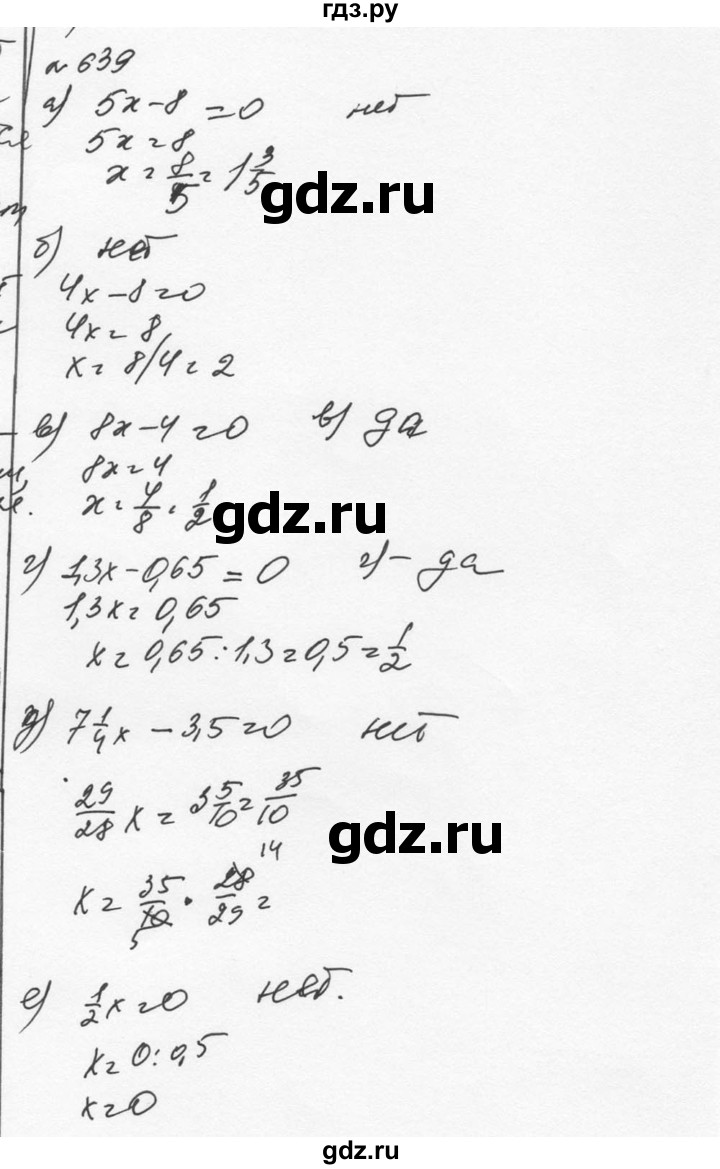 гдз.ру
№ 639
а) 5x-8=0 нет
5x=8
x=8/5=1 3/5
gdz.ru
б) нет
4x-8=0
4x=8
x=8/4=2
в) 8x-4=0 в) да
8x=4
x=4/8=1/2
gdz.ru
г) 1,3x-0,65=0 г)- да
1,3x=0,65
x=0,65:1,3=0,5=1/2
д) 7 1/4x-3,5=0 нет
29/28 x=3 5/10=35/10
gdz.ru
14
x=35/10·28/29=
5
е) 1/2x=0 нет.
x=0:0,5
x=0
gdz.ru